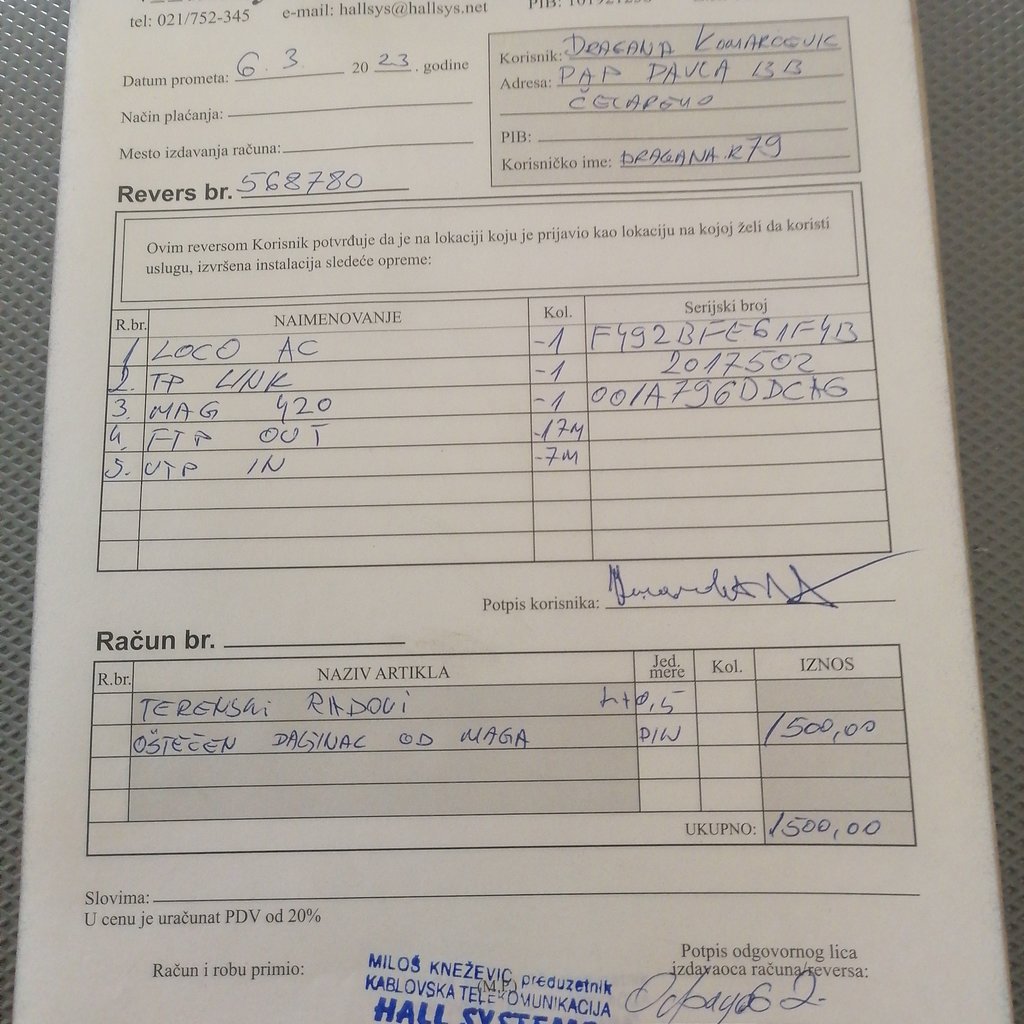 tel: 021/752-345 e-mail: hallsys@hallsys.net PIB:
Datum prometa: 6. 3. 20 23. godine
Način plaćanja:
Mesto izdavanja računa:
Korisnik: DRAGANA KOMARCEVIC
Adresa: PAP PAVLA 13B
ČELAREVO
PIB:
Korisničko ime: DRAGANA.R79
Revers br. 568780
Ovim reversom Korisnik potvrđuje da je na lokaciji koju je prijavio kao lokaciju na kojoj želi da koristi
uslugu, izvršena instalacija sledeće opreme:
R.br. NAIMENOVANJE Kol. Serijski broj
1 LOCO AC -1 F492BFE61F4B
2. TP LINK -1 2017502
3. MAG 420 -1 001A796DDCA6
4. FTP OUT -17M
5. UTP IN -7M
Potpis korisnika:
Račun br.
R.br. NAZIV ARTIKLA Jed. mere Kol. IZNOS
TERENSKI RADOVI h+0,5
OŠTEĆEN DALJINAC OD MAGA PIN 1500,00
UKUPNO: 1500,00
Slovima:
U cenu je uračunat PDV od 20%
Račun i robu primio:
MILOŠ KNEŽEVIĆ preduzetnik
(M.P.)
KABLOVSKA TELEKOMUNIKACIJA
HALL SYSTEMS
Potpis odgovornog lica
izdavaoca računa/reversa: